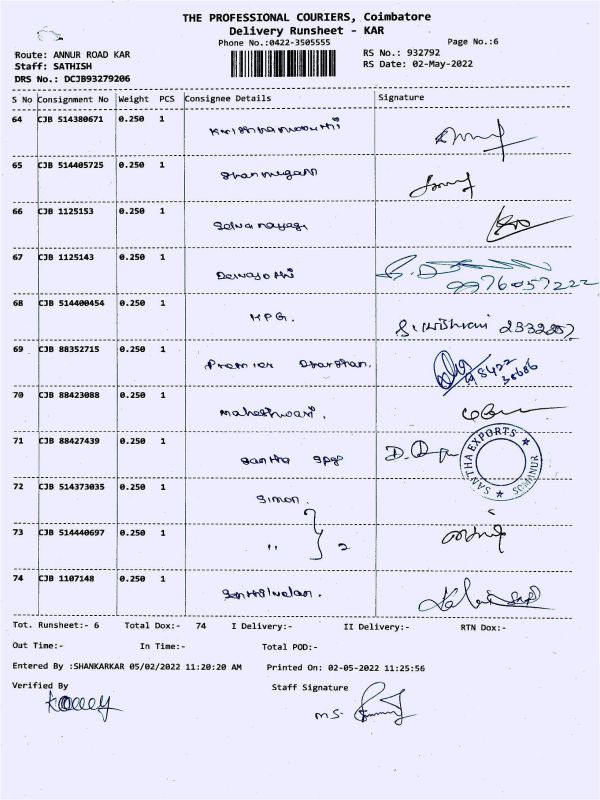 THE PROFESSIONAL COURIERS, Coimbatore
Delivery Runsheet - KAR
Phone No.:0422-3505555 Page No.:6
Route: ANNUR ROAD KAR RS No.: 932792
Staff: SATHISH RS Date: 02-May-2022
DRS No.: DCJB93279206
S No Consignment No Weight PCS Consignee Details Signature
64 CJB 514380671 0.250 1
Krishnamoorthi
65 CJB 514405725 0.250 1
Shanmugam
66 CJB 1125153 0.250 1
Selvanayagi
67 CJB 1125143 0.250 1
9976057222
68 CJB 514400454 0.250 1
HPG.
69 CJB 88352715 0.250 1
Premier
70 CJB 88423088 0.250 1
Maheshwari.
71 CJB 88427439 0.250 1
Santha Spg
SANTHA EXPORTS ★ SOMANUR ★
72 CJB 514373035 0.250 1
Simon.
73 CJB 514440697 0.250 1
" 2
74 CJB 1107148 0.250 1
Senthilvelan.
Tot. Runsheet:- 6 Total Dox:- 74 I Delivery:- II Delivery:- RTN Dox:-
Out Time:- In Time:- Total POD:-
Entered By :SHANKARKAR 05/02/2022 11:20:20 AM Printed On: 02-05-2022 11:25:56
Verified By Staff Signature
M.S.